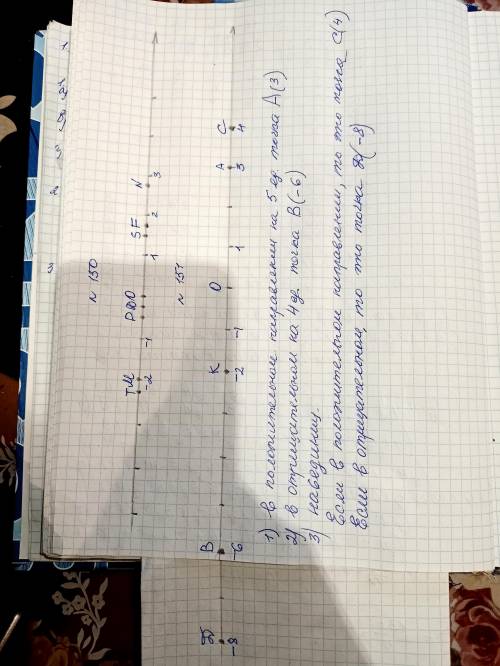 № 150
Т М Р D O S F N
-2 -1 1 2 3
№ 151
D B K O A C
-8 -6 -2 -1 1 3 4
1) в положительном направлении на 5 ед. точка А(3)
2) в отрицательном на 4 ед. точка В(-6)
3) на 6 единиц.
Если в положительном направлении, то это точка С(4)
Если в отрицательном, то это точка D(-8)